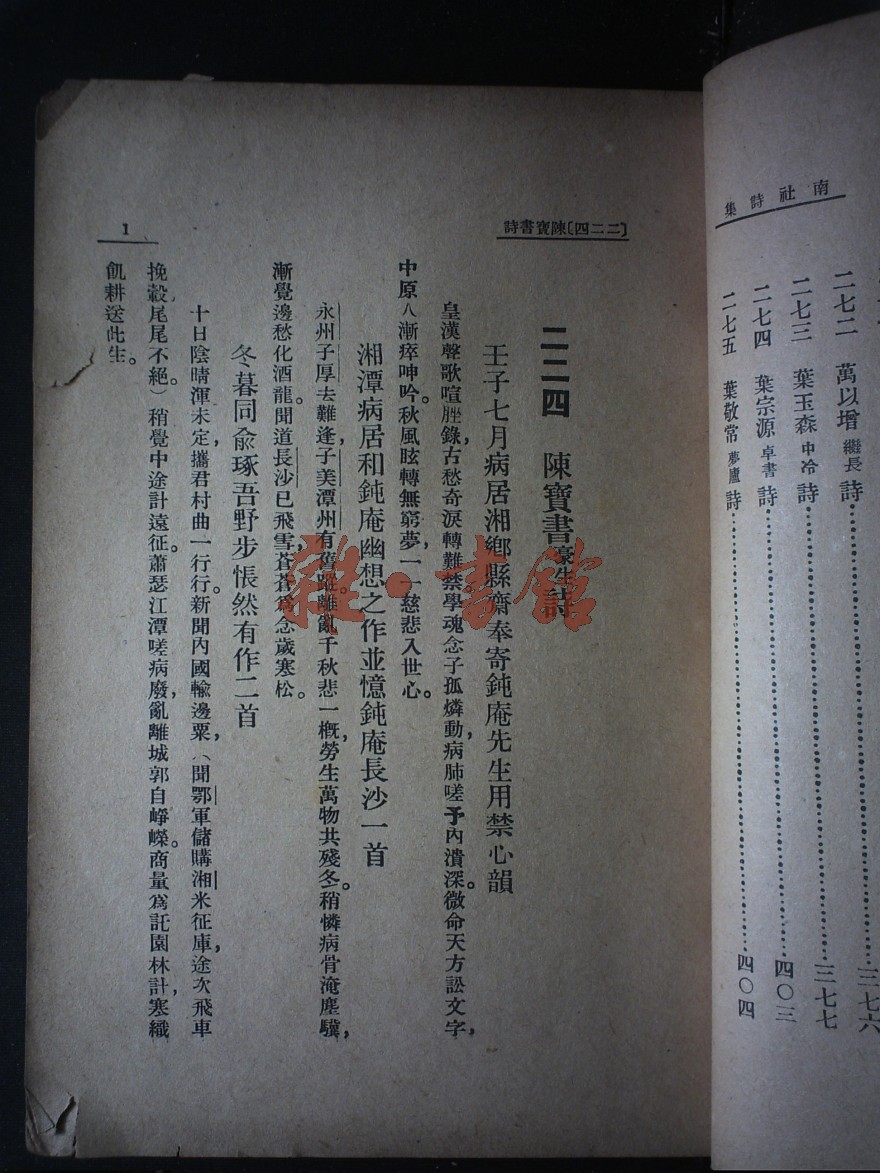 南社詩集
二七二 萬以增繼長詩 三七六
二七三 葉玉森中冷詩 三七七
二七四 葉宗源卓書詩 四〇三
二七五 葉敬常夢廬詩 四〇四
〔二二四〕陳寶書詩
1
二二四 陳寶書豪生詩
壬子七月病居湘鄉縣齋奉寄鈍庵先生用禁心韻
皇漢聲歌喧陞錄,古愁奇淚轉難禁。學魂念子孤燐動,病肺嗟予內潰深。微命天方訟文字,
中原八漸瘁呻吟。秋風眩轉無窮夢,一一慈悲入世心。
湘潭病居和鈍庵幽想之作並憶鈍庵長沙一首
永州子厚去難逢,子美潭州有舊蹤。離亂千秋悲一概,勞生萬物共殘冬。稍憐病骨淹塵驥,
漸覺邊愁化酒龍。聞道長沙已飛雪,蒼蒼為念歲寒松。
冬暮同俞琢吾野步悵然有作二首
十日陰晴渾未定,攜君村曲一行行。新聞內國輸邊粟,(聞鄂軍儲購湘米征庫,途次飛車
挽轂尾尾不絕。)稍覺中途計遠征。蕭瑟江潭嗟病廢,亂離城郭自崢嶸。商量為託園林計,寒織
飢耕送此生。
雜·書館